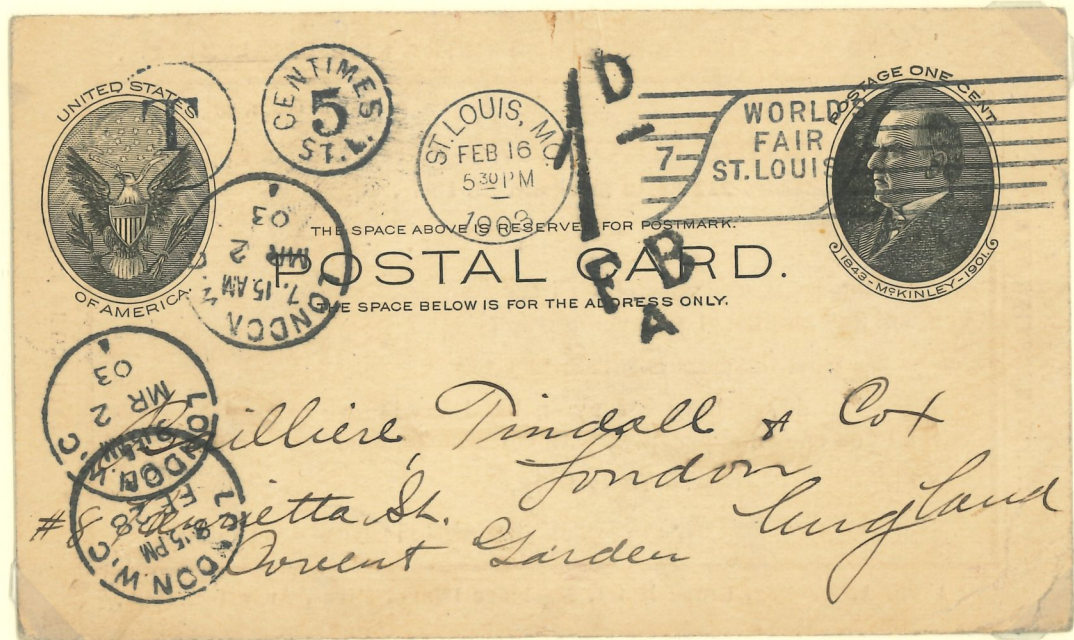 UNITED STATES
OF AMERICA.
T
CENTIMES
5
ST.L.
ST. LOUIS, MO.
FEB 16
5 30 PM
1903
1D-
7
WORLD'S
FAIR
ST. LOUIS
POSTAGE ONE CENT
1843-McKINLEY-1901.
THE SPACE ABOVE IS RESERVED FOR POSTMARK.
POSTAL CARD.
THE SPACE BELOW IS FOR THE ADDRESS ONLY.
F B
A
LONDON
7.15 AM
MR 2
03
LONDON W.C
MR 2
03
LONDON W.C
8.15 PM
FE 28
Baillière Tindall & Cox
London
#8 Henrietta St.
England
Covent Garden